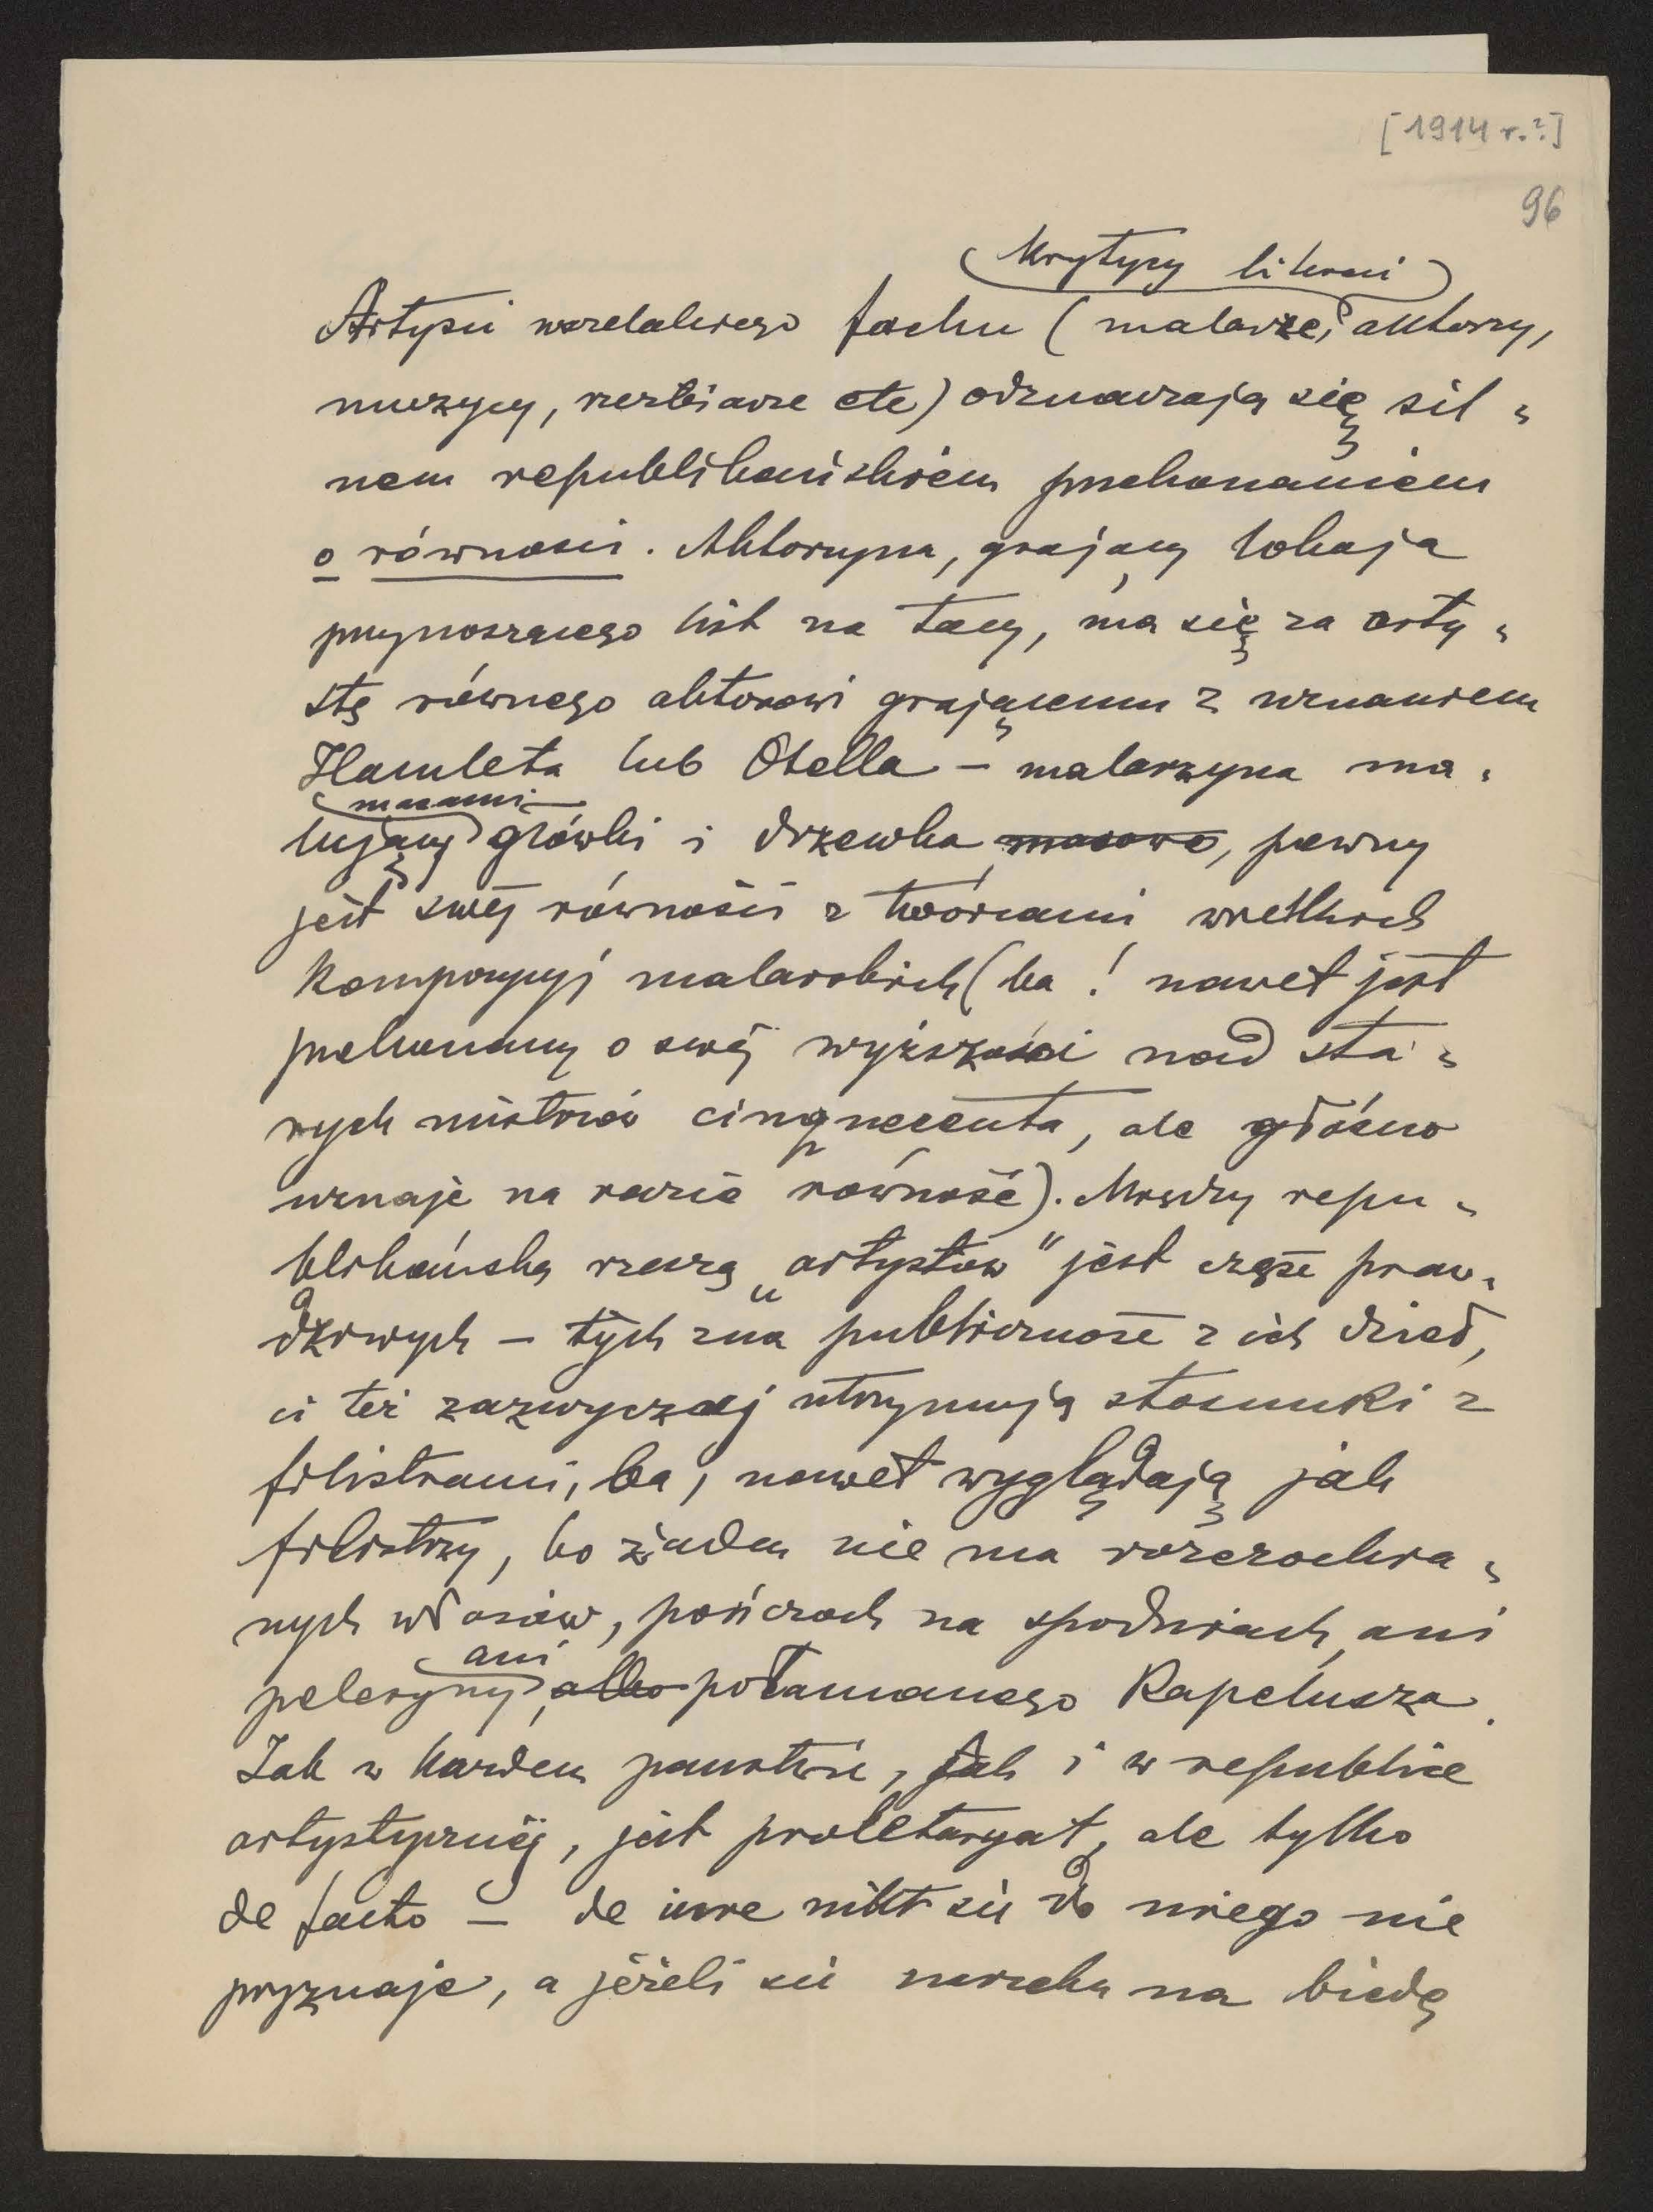 [1914 r.?]
96
krytycy literaci
Artyści wszelakiego fachu (malarze, aktorzy,
muzycy, rzeźbiarze etc) odznaczają się sil=
nem republikańskiem przekonaniem
o równości. Aktorzyna, grający lokaja
przynoszącego list na tacy, ma się za arty=
stę równego aktorowi grającemu z uznaniem
Hamleta lub Otella – malarzyna ma=
masami
lujący główki i drzewka masowo, pewny
jest swej równości z twórcami wielkich
kompozycyj malarskich (ba! nawet jest
przekonany o swej wyższości nad sta=
rych mistrzów cinquecenta, ale głośno
uznaje na razie równość). Między repu=
blikańską rzeszą „artystów" jest część praw=
dziwych – tych zna publiczność z ich dzieł,
ci też zazwyczaj utrzymują stosunki z
filistrami, ba, nawet wyglądają jak
filistrzy, bo żaden nie ma rozczochra=
nych włosów, pończoch na spodniach, ani
ani
peleryny, albo połamanego kapelusza.
Jak w każdem państwie, tak i w republice
artystycznej, jest proletaryat, ale tylko
de facto – de iure nikt się do niego nie
przyznaje, a jeżeli się narzeka na biedę